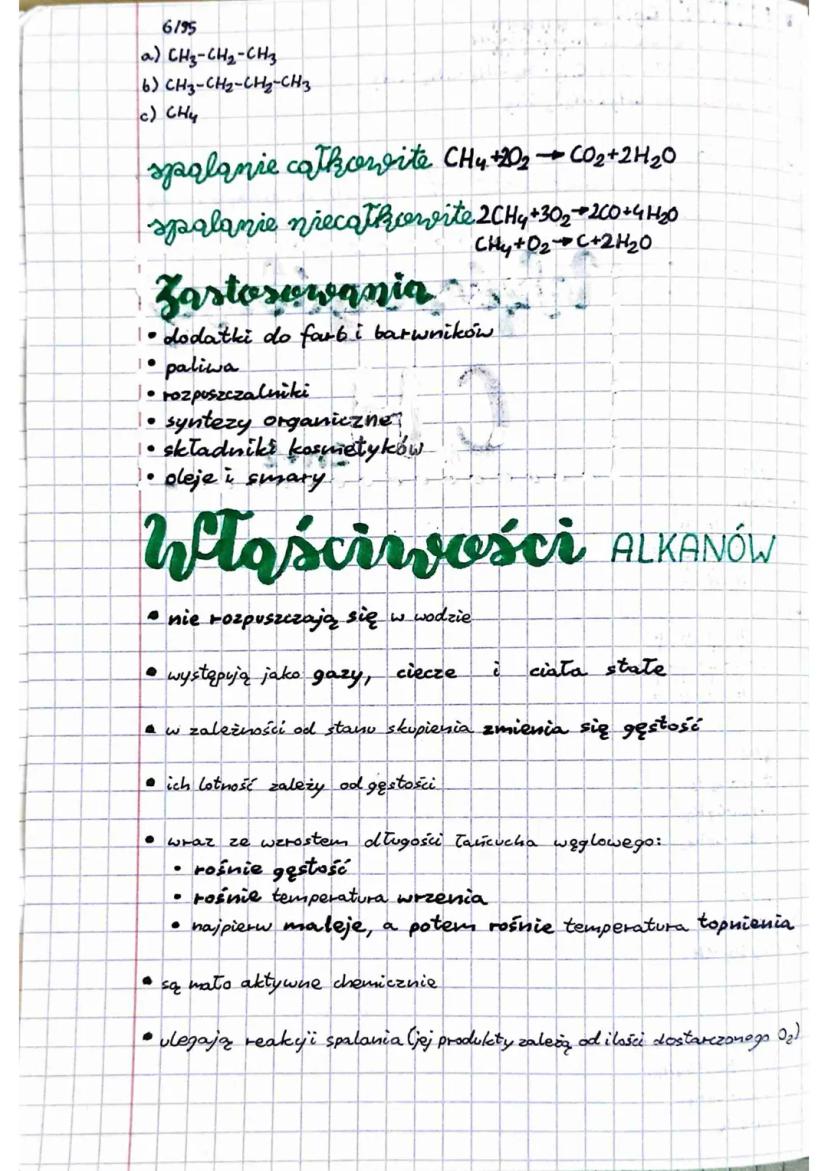 6/95
a) CH₃-CH₂-CH₃
b) CH₃-CH₂-CH₂-CH₃
c) CH₄
spalanie całkowite CH₄+2O₂→CO₂+2H₂O
spalanie niecałkowite 2CH₄+3O₂→2CO+4H₂O
CH₄+O₂→C+2H₂O
Zastosowania
• dodatki do farb i barwników
• paliwa
• rozpuszczalniki
• syntezy organicznej
• składniki kosmetyków
• oleje i smary
Właściwości ALKANÓW
• nie rozpuszczają się w wodzie
• występują jako gazy, ciecze i ciała stałe
• w zależności od stanu skupienia zmienia się gęstość
• ich lotność zależy od gęstości
• wraz ze wzrostem długości łańcucha węglowego:
• rośnie gęstość
• rośnie temperatura wrzenia
• najpierw maleje, a potem rośnie temperatura topnienia
• są mało aktywne chemicznie
• ulegają reakcji spalania (jej produkty zależą od ilości dostarczonego O₂)